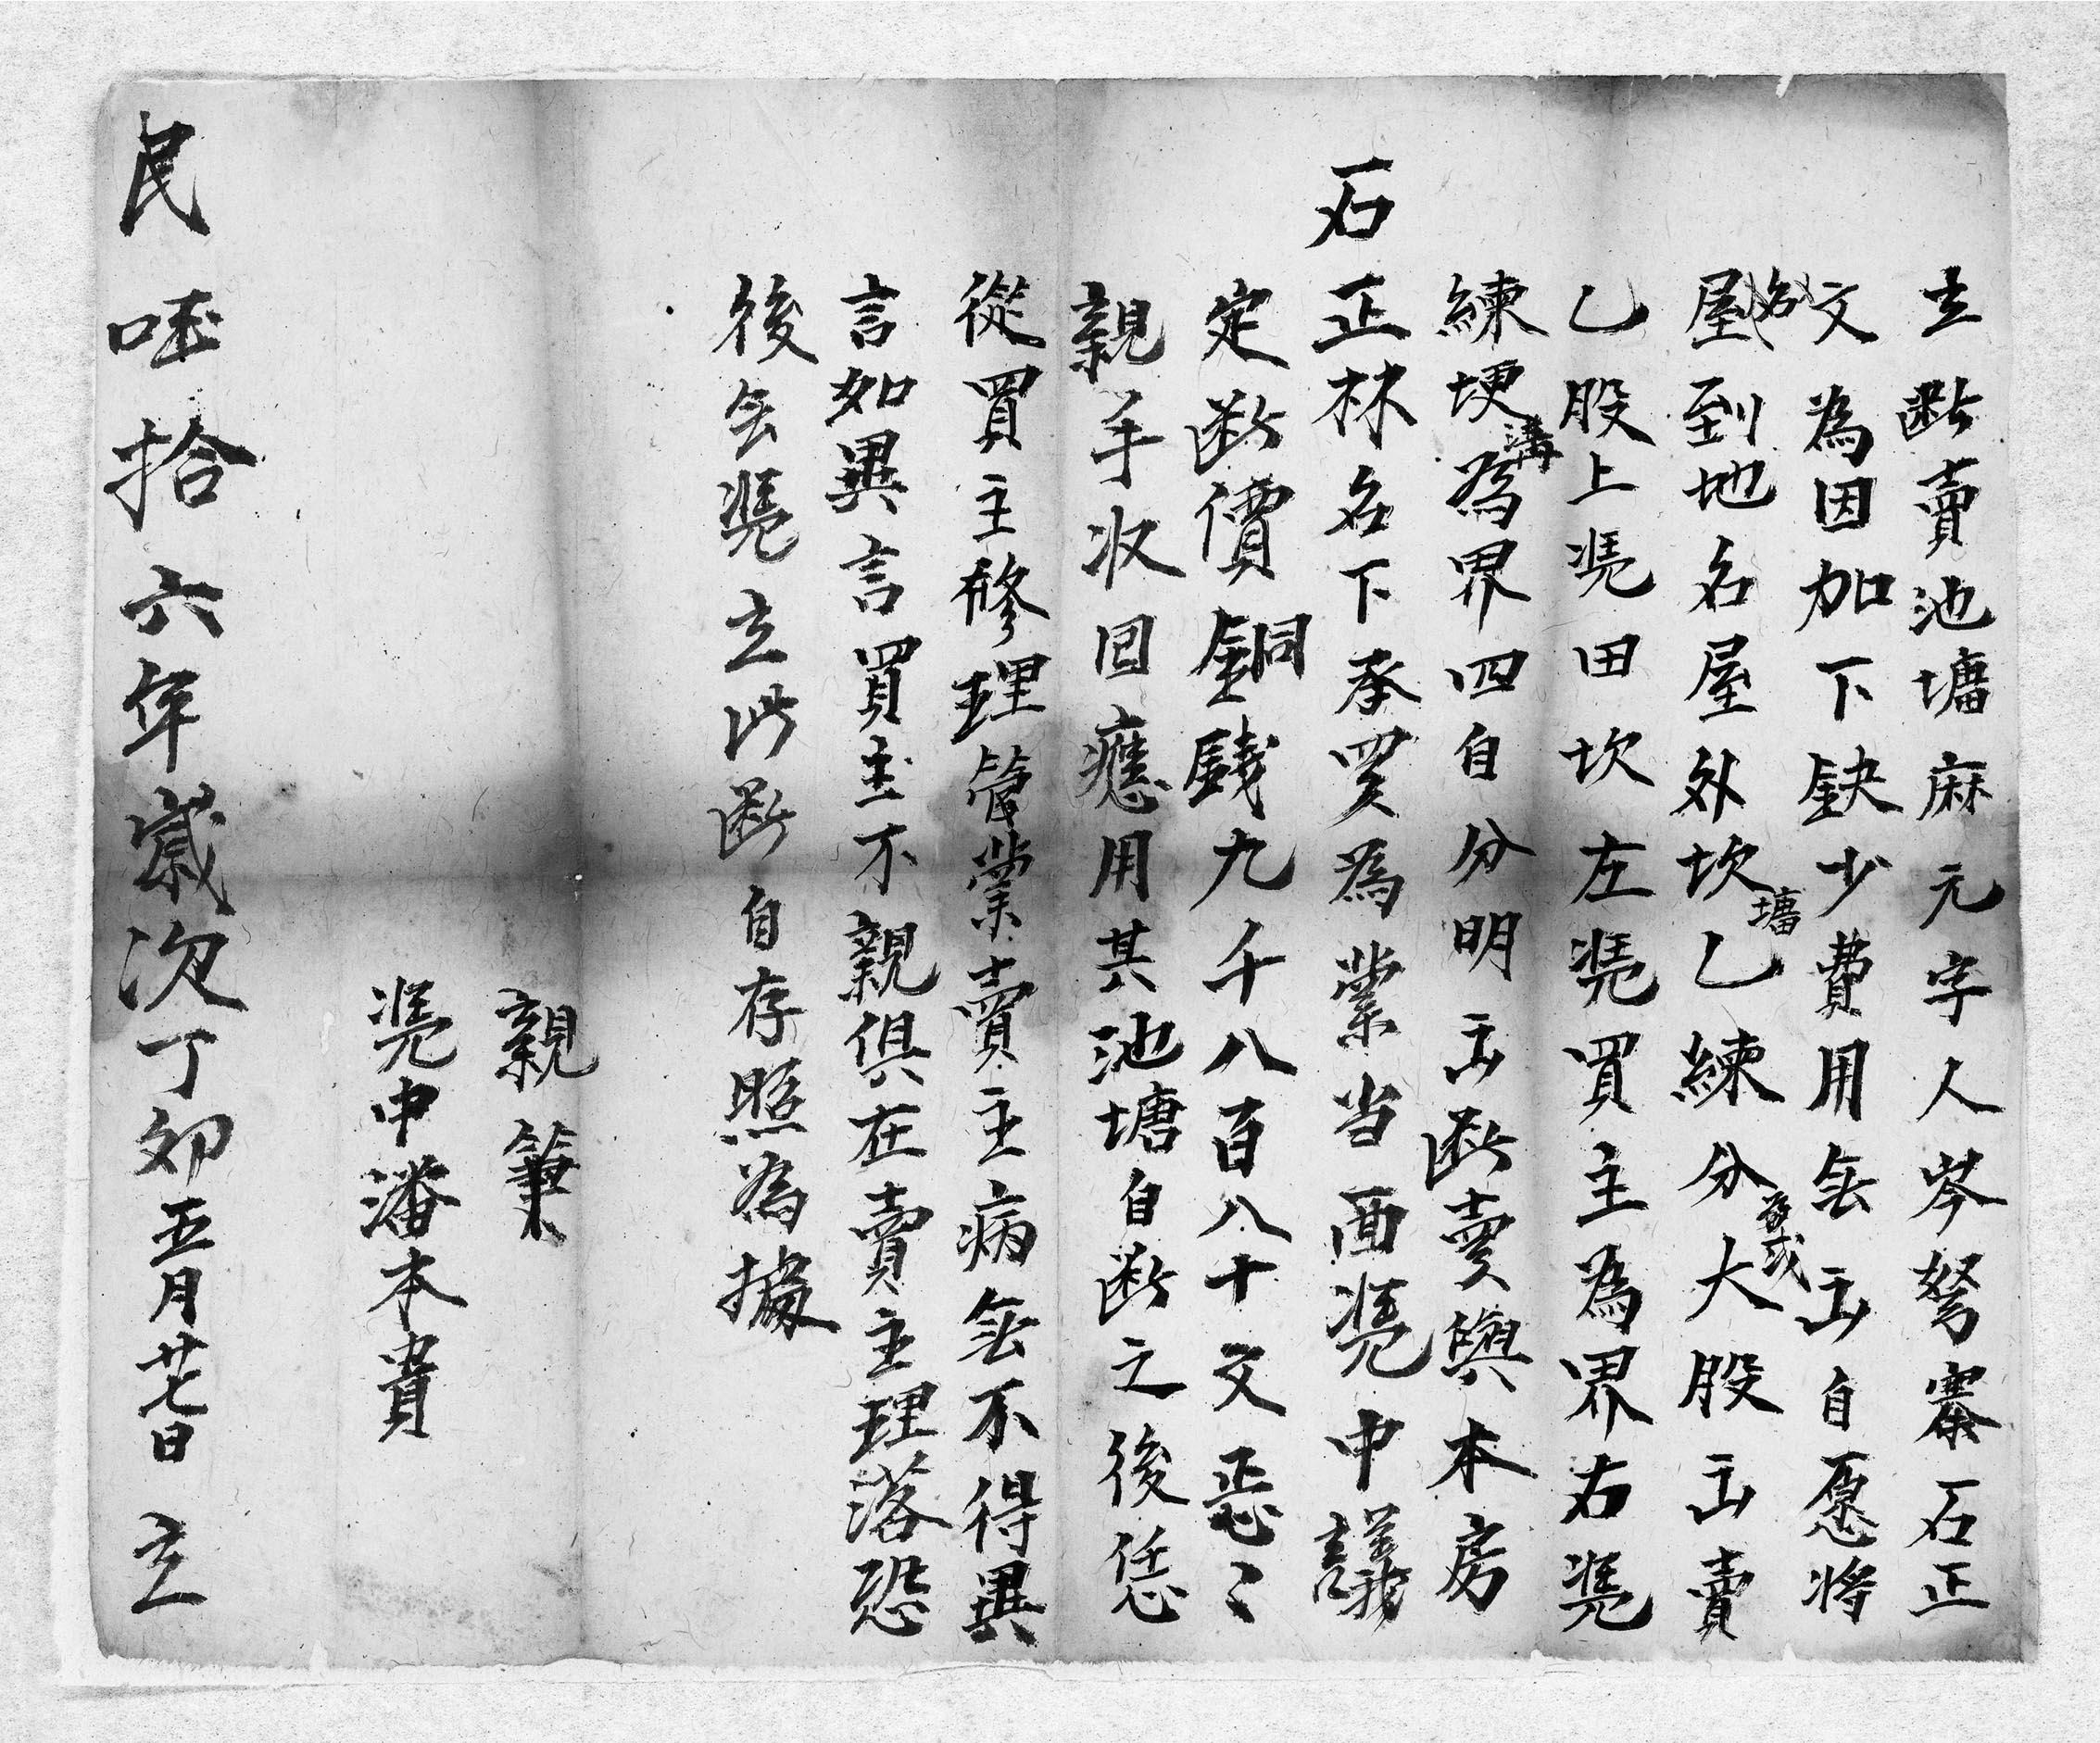 立斷賣池塘麻元字人岑努寨石正
文為因加下缺少費用無出自愿將
屋(名)到地名屋外坎塘乙練分為弍大股出賣
乙股上凴田坎左凴買主為界右凴
練埂溝為界四自分明出断賣與本房
石正林名下承買為業当面凴中議
定断價銅錢九千八百八十文恧〻
親手收回應用其池塘自断之後恁
從買主修理管業賣主病無不得異
言如異言買主不親俱在賣主理落恐
後無凴立此断自存照為據
親筆
凴中潘本貴
民囯拾六年歲次丁卯五月廿七日 立